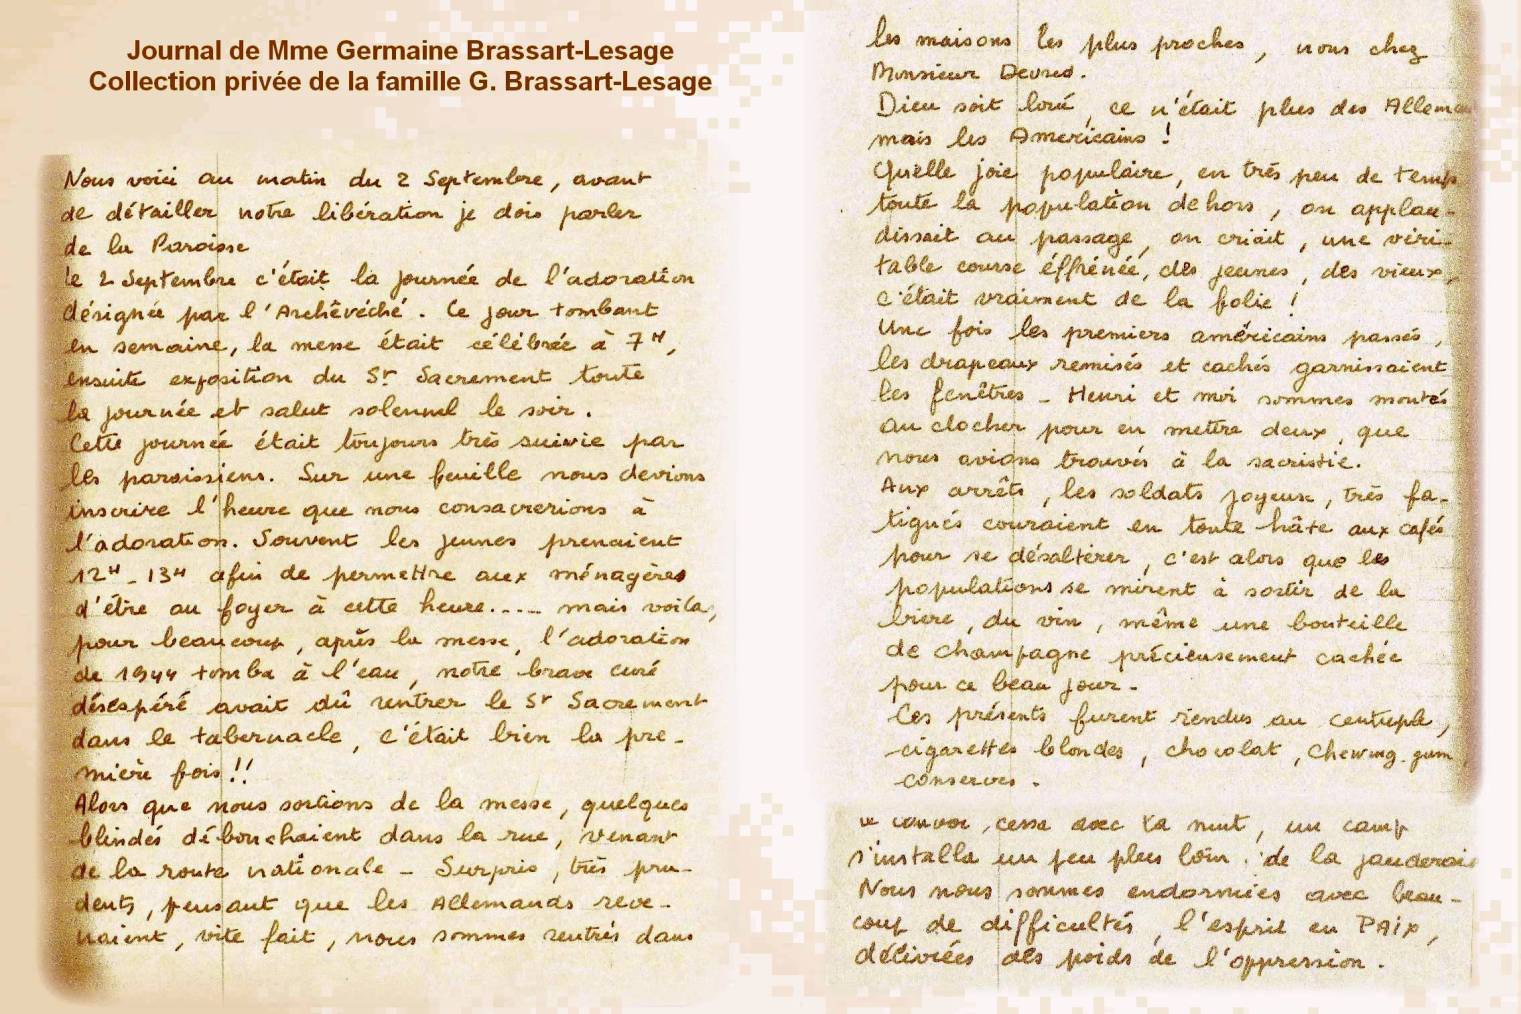 Journal de Mme Germaine Brassart-Lesage
Collection privée de la famille G. Brassart-Lesage
Nous voici au matin du 2 Septembre, avant
de détailler notre libération je dois parler
de la Paroisse
le 2 Septembre c'était la journée de l'adoration
désignée par l'Archêvéché. Ce jour tombant
en semaine, la messe était célébrée à 7H,
ensuite exposition du St Sacrement toute
la journée et salut solennel le soir.
Cette journée était toujours très suivie par
les paroissiens. Sur une feuille nous devions
inscrire l'heure que nous consacrerions à
l'adoration. Souvent les jeunes prenaient
12H-13H afin de permettre aux ménagères
d'être au foyer à cette heure..... mais voilà,
pour beaucoup, après la messe, l'adoration
de 1944 tomba à l'eau, notre brave curé
désespéré avait dû rentrer le St Sacrement
dans le tabernacle, c'était bien la pre-
mière fois!!
Alors que nous sortions de la messe, quelques
blindés débouchaient dans la rue, venant
de la route nationale - Surpris, très pru-
dents, pensant que les Allemands reve-
naient, vite fait, nous sommes rentrés dans
les maisons les plus proches, nous chez
Monsieur Devred.
Dieu soit loué, ce n'était plus des Alleman
mais les Americains !
Quelle joie populaire, en très peu de temps
toute la population dehors, on applau-
dissait au passage, on criait, une véri-
table course éffrénée, des jeunes, des vieux,
c'était vraiment de la folie !
Une fois les premiers américains passés,
les drapeaux remisés et cachés garnissaient
les fenêtres - Henri et moi sommes montés
au clocher pour en mettre deux, que
nous avions trouvés à la sacristie.
Aux arrêts, les soldats joyeux, très fa-
tigués couraient en toute hâte aux cafés
pour se désaltérer, c'est alors que les
populations se mirent à sortir de la
bière, du vin, même une bouteille
de champagne précieusement cachée
pour ce beau jour.
Ces présents furent rendus au centuple,
cigarettes blondes, chocolat, chewing-gum,
conserves.
le convoi, cessa avec la nuit, un camp
s'installa un peu plus loin. de la
Nous nous sommes endormies avec beau-
coup de difficultés, l'esprit en PAix,
délivrées des poids de l'oppression.